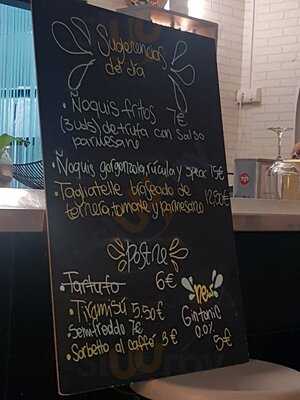 Sugerencias
de día
• Ñoquis fritos 7€
(3 uds) de trufa con salsa
parmesano
• Ñoquis gorgonzola, rúcula y speck 15€
• Tagliatelle brafeado de
ternera, tomate y parmesano 12,50€
postre
• Tartufo 6€
• Tiramisú 5.50€
Semifreddo 7€
• Sorbetto al caffé 3€
new
Gintonic
0.0%
5€